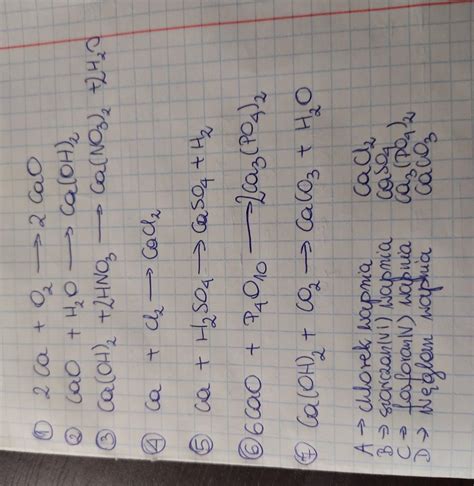 ① 2Ca + O₂ → 2CaO
② CaO + H₂O → Ca(OH)₂
③ Ca(OH)₂ + 2HNO₃ → Ca(NO₃)₂ + 2H₂O
④ Ca + Cl₂ → CaCl₂
⑤ Ca + H₂SO₄ → CaSO₄ + H₂
⑥ 6CaO + P₄O₁₀ → 2Ca₃(PO₄)₂
⑦ Ca(OH)₂ + CO₂ → CaCO₃ + H₂O
A → chlorek wapnia CaCl₂
B → siarczan(VI) wapnia CaSO₄
C → fosforan(V) wapnia Ca₃(PO₄)₂
D → węglan wapnia CaCO₃